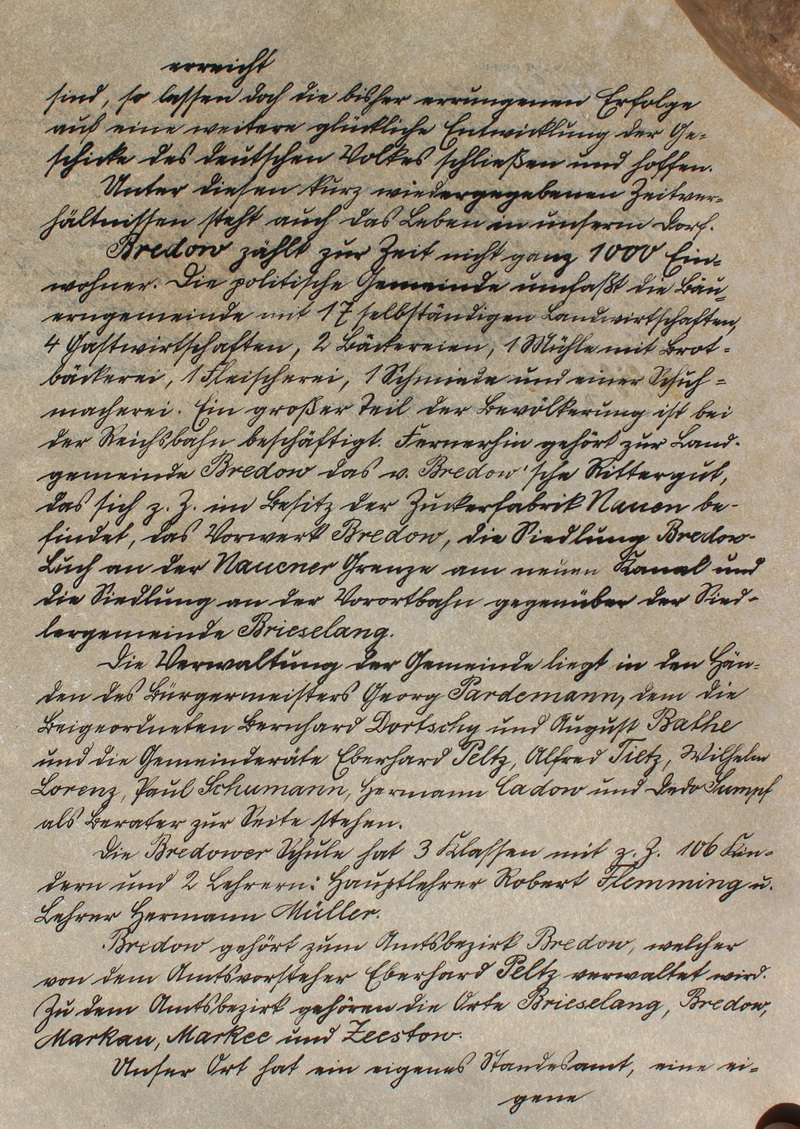 erreicht
sind, so lassen doch die bisher errungenen Erfolge
auf eine weitere glückliche Entwicklung der Ge-
schicke des deutschen Volkes schließen und hoffen.
Unter diesen kurz wiedergegebenen Zeitver-
hältnissen steht auch das Leben in unserm Dorf.
Bredow zählt zur Zeit nicht ganz 1000 Ein-
wohner. Die politische Gemeinde umfaßt die Bäu-
erngemeinde mit 17 selbständigen Landwirtschaften,
4 Gastwirtschaften, 2 Bäckereien, 1 Mühle mit Brot-
bäckerei, 1 Fleischerei, 1 Schmiede und einer Schuh-
macherei. Ein großer Teil der Bevölkerung ist bei
der Reichsbahn beschäftigt. Fernerhin gehört zur Land-
gemeinde Bredow das v. Bredow'sche Rittergut,
das sich z. Z. im Besitz der Zuckerfabrik Nauen be-
findet, das Vorwerk Bredow, die Siedlung Bredow-
Luch an der Nauener Grenze am neuen Kanal und
die Siedlung an der Vorortbahn gegenüber der Sied-
lergemeinde Brieselang.
Die Verwaltung der Gemeinde liegt in den Hän-
den des Bürgermeisters Georg Pardemann, dem die
Beigeordneten Bernhard Dortschy und August Bathe
und die Gemeinderäte Eberhard Peltz, Alfred Tietz, Wilhelm
Lorenz, Paul Schumann, Hermann Cadow und Dedo Sumpf
als Berater zur Seite stehen.
Die Bredower Schule hat 3 Klassen mit z. Z. 106 Kin-
dern und 2 Lehrern: Hauptlehrer Robert Flemming u.
Lehrer Hermann Müller.
Bredow gehört zum Amtsbezirk Bredow, welcher
von dem Amtsvorsteher Eberhard Peltz verwaltet wird.
Zu dem Amtsbezirk gehören die Orte Brieselang, Bredow,
Markau, Markee und Zeestow.
Unser Ort hat ein eigenes Standesamt, eine ei-
gene